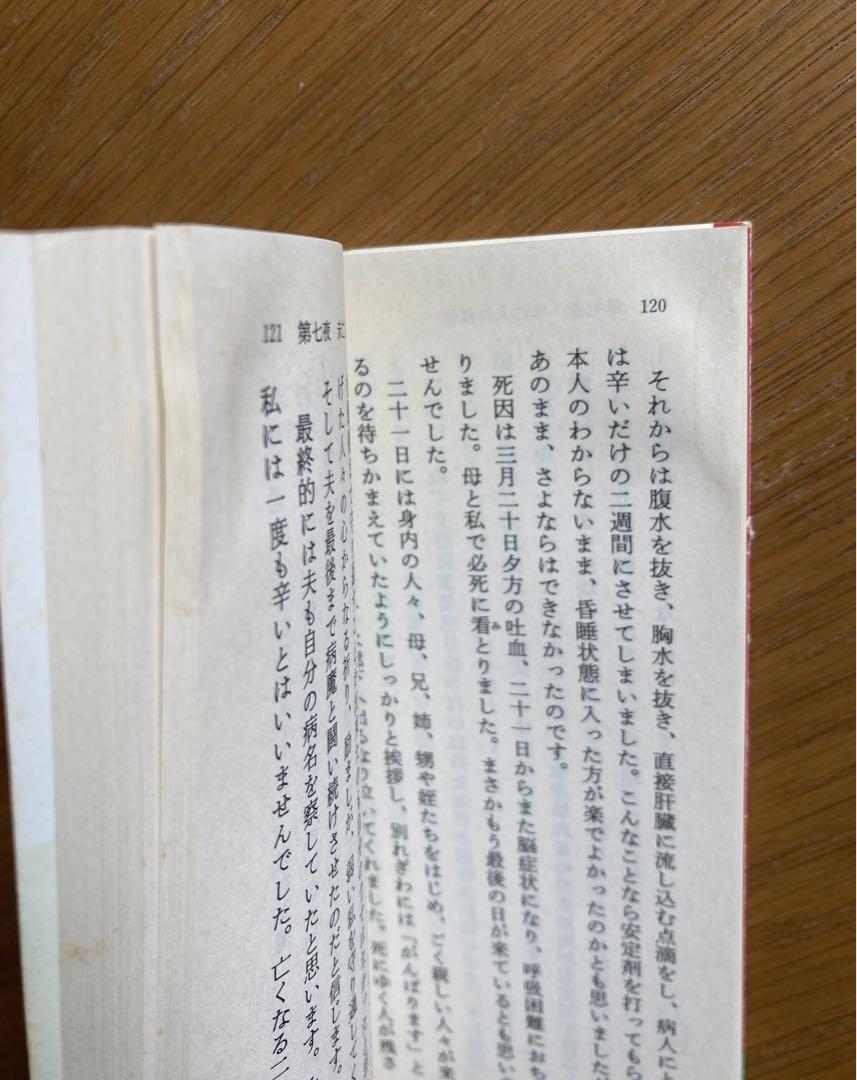 120
それからは腹水を抜き、胸水を抜き、直接肝臓に流し込む点滴をし、病人に
は辛いだけの二週間にさせてしまいました。こんなことなら安定剤を打ってもら
本人のわからないまま、昏睡状態に入った方が楽でよかったのかとも思いました
あのまま、さよならはできなかったのです。
死因は三月二十日夕方の吐血、二十一日からまた脳症状になり、呼吸困難におち
りました。母と私で必死に看とりました。まさかもう最後の日が来ているとも思い
み
せんでした。
二十一日には身内の人々、母、兄、姉、甥や姪たちをはじめ、ごく親しい人々が来
るのを待ちかまえていたようにしっかりと挨拶し、別れぎわには「がんばります」と
泣いてくれました。死にゆく人が残さ
121 第七夜 未亡
げた人々の心からなる祈り、励ましが、弱い私を守り通してく
そして夫を最後まで病魔と闘い続けさせたのだと信じます。
最終的には夫も自分の病名を察していたと思います。
私には一度も辛いとはいいませんでした。亡くなる二